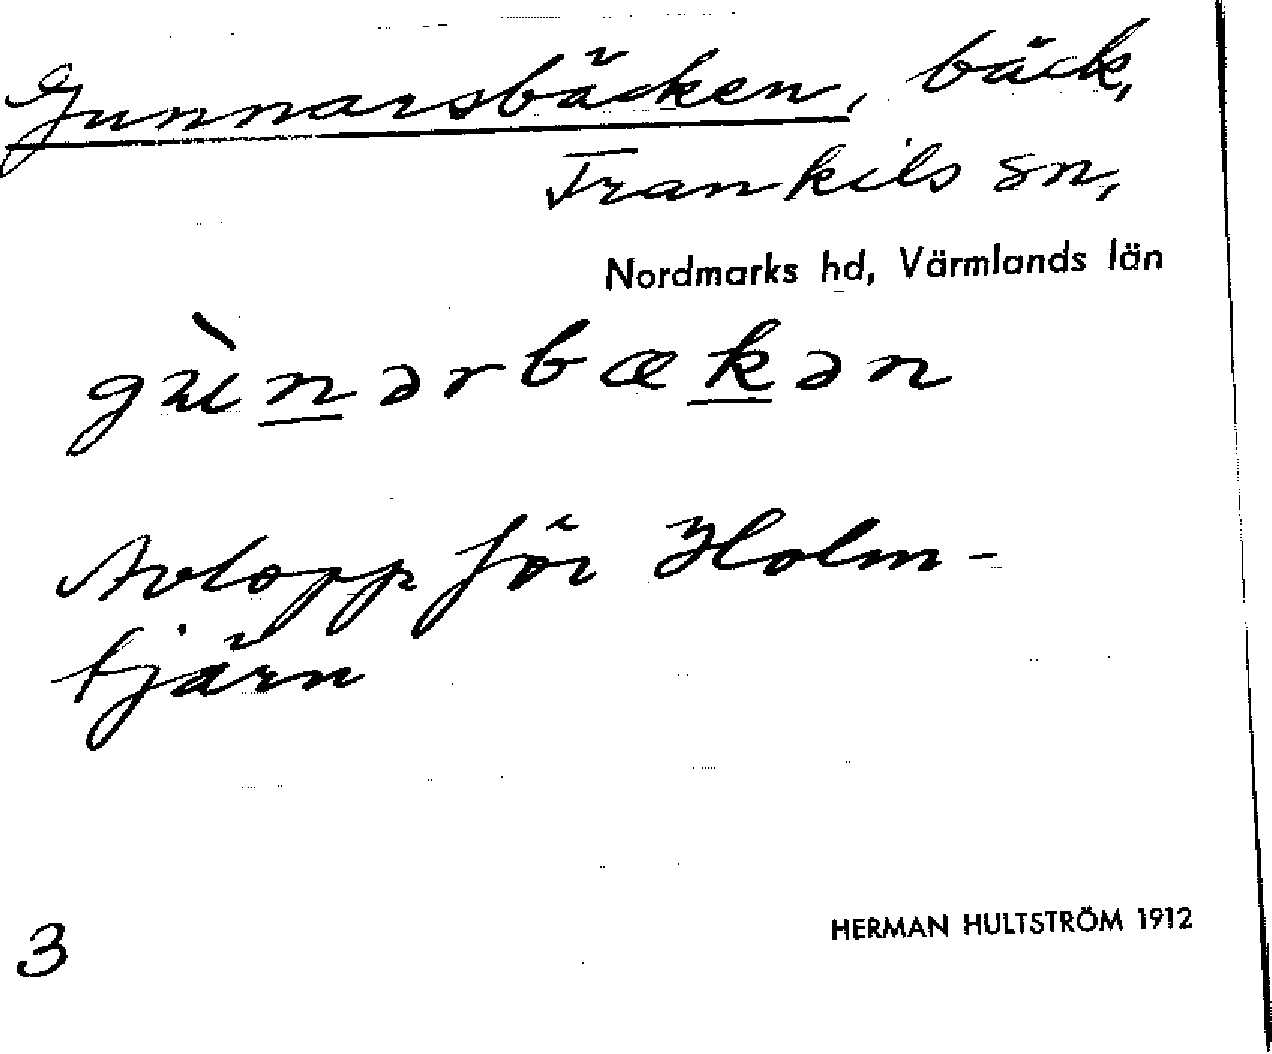 Gunnarsbäcken, bäck,
Trankils sn,
Nordmarks hd, Värmlands län
gùnərbækən
Avlopp för Holm-
tjärn
3
HERMAN HULTSTRÖM 1912